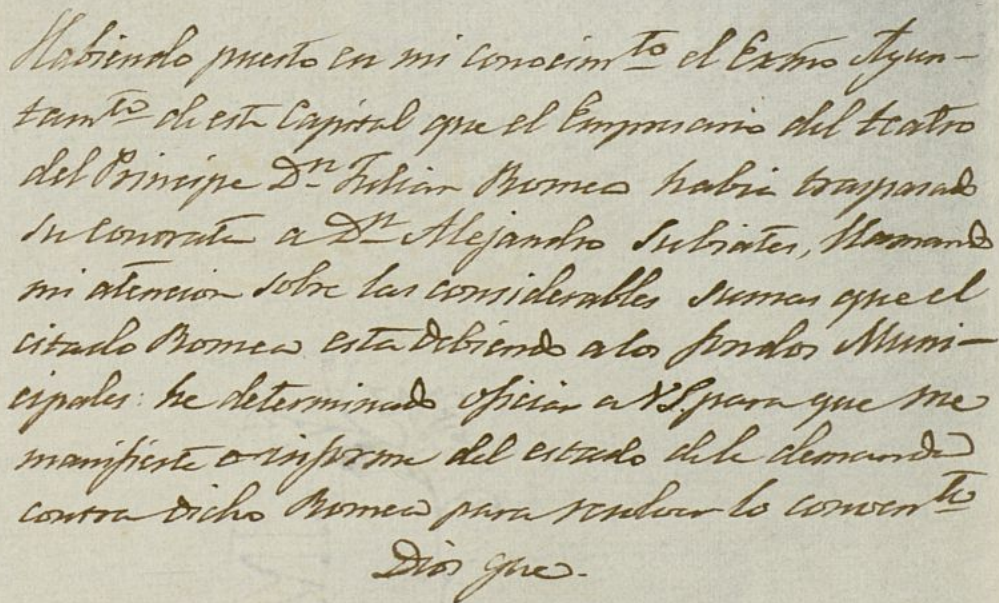 Habiendo puesto en mi conocim.to el Exmo Ayun-
tam.to de esta Capital que el Empresario del teatro
del Principe D.n Julian Romea habia traspasado
su contrata a D.n Alejandro Subiates, llamando
mi atencion sobre las considerables sumas que el
citado Romea esta debiendo a los fondos Muni-
cipales: he determinado oficiar a VS. para que me
manifieste o informe del estado de la demanda
contra dicho Romea para resolver lo conven.te
Dios gue.